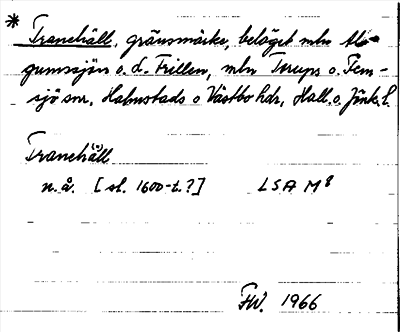 * Tranehäll, gränsmärke, beläget mln Ala-
gumssjön o. d. Frillen, mln Torups o. Fem-
sjö snr, Halmstads o Västbo hdr, Hall. o. Jönk. l.
Tranehäll
n. å. [sl. 1600-t.?] LSA M8
FW. 1966